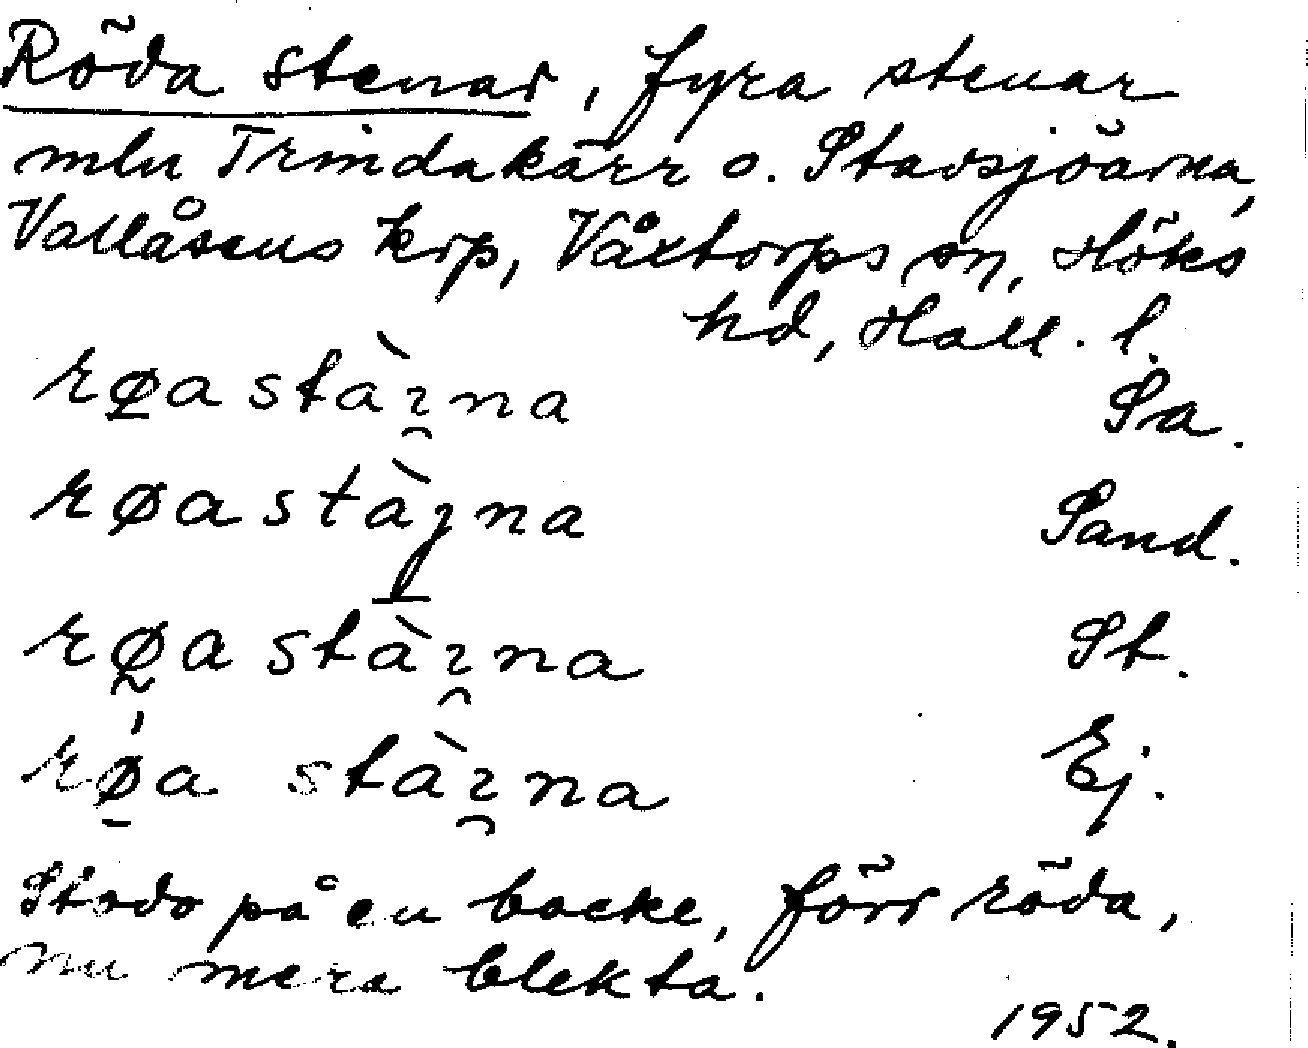 Röda stenar, fyra stenar
mln Trindakärr o. Stavsjöarna,
Vallåsens krp, Våxtorps sn, Höks
hd, Hall. l.
rø̱astàɿ̯na Sa.
røastàȷna Sand.
rø̰astàɿ̯na St.
rǿ̱a stàɿ̯na Ej.
Stodo på en backe, förr röda,
nu mera blekta.
1952.